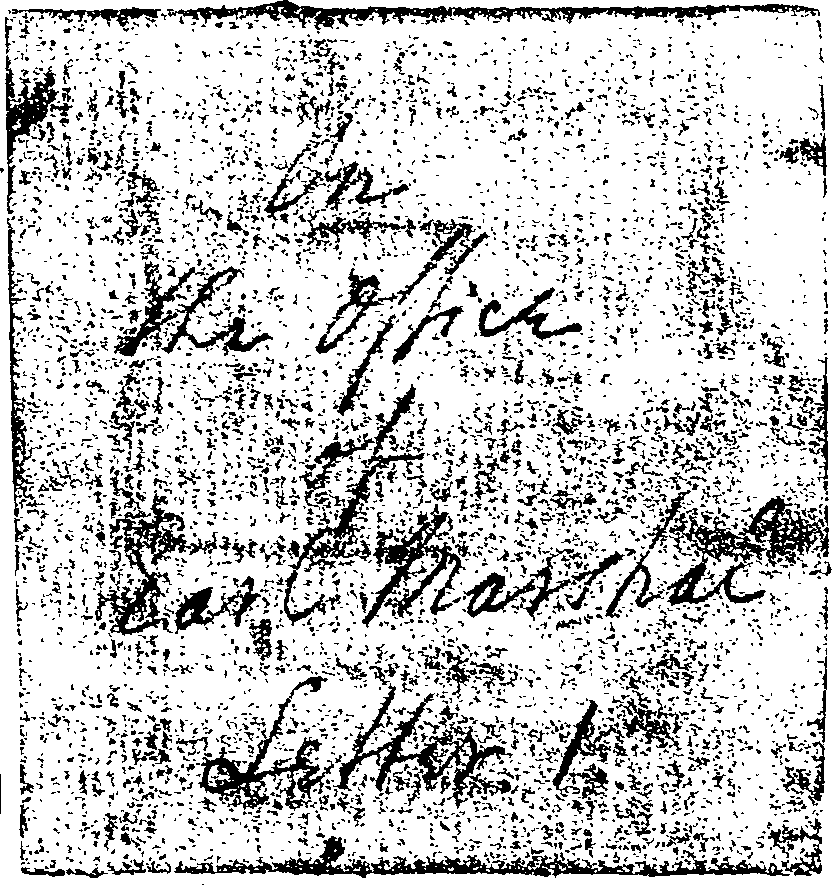 On
the Office
of
Earl Marshal
Letter 1.